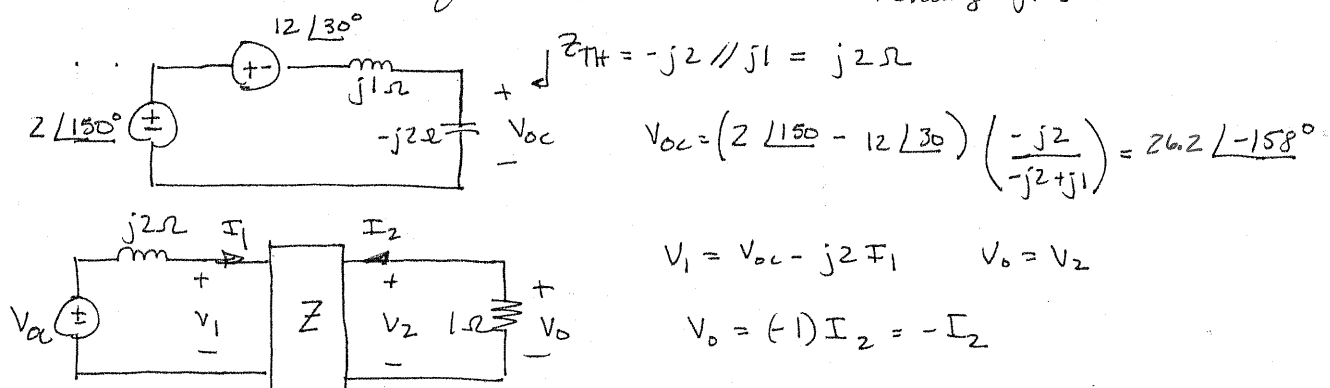 12 ∠30°
+ -
j1Ω
2 ∠150°
±
-j2Ω
+
Voc
-
Z_TH = -j2 // j1 = j2Ω
Voc = (2 ∠150 - 12 ∠30) (-j2 / (-j2+j1)) = 26.2 ∠-158°
j2Ω
I1
I2
Voc
±
+
V1
-
Z
+
V2
-
1Ω
+
Vo
-
V1 = Voc - j2 I1 Vo = V2
Vo = (-1) I2 = -I2